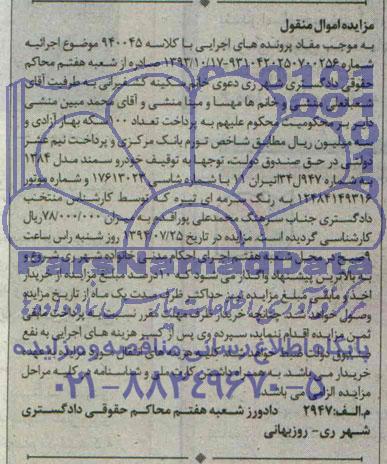 مزایده اموال منقول
به موجب مفاد پرونده های اجرایی با کلاسه ۹۴۰۰۴۵ موضوع اجرائیه
شماره ۹۳۱۰۴۲۰۲۵۰۷۰۰۲۵۶-۱۳۹۳/۱۰/۱۷ صادره از شعبه هفتم محاکم
حقوقی دادگستری شهر ری دعوی خانم سکینه به طرفیت آقای
شعبانعلی منشی و خانم ها مهسا و مینا منشی و آقای محمد مبین منشی
دایر بر محکومیت محکوم علیهم به پرداخت تعداد ۱۰۰ سکه بهار آزادی و
سه میلیون ریال مطابق شاخص تورم بانک مرکزی و پرداخت نیم عشر
دولتی در حق صندوق دولت، توجهاً به توقیف خودرو سمند مدل ۱۳۸۴
به شماره ۹۴۷ل۳۴ ایران با شماره شاسی و شماره موتور
۱۲۴۸۴۱۴۹۳۱۶ به رنگ سرمه ای تیره که توسط کارشناس منتخب
دادگستری جناب سرهنگ محمدعلی پوراقدم به میزان ۷۸/۰۰۰/۰۰۰ ریال
کارشناسی گردیده است. مزایده در تاریخ ۱۳۹۴/۰۷/۲۵ روز شنبه راس ساعت
۹ صبح در محل شعبه هفتم اجرای احکام مدنی خانواده شهر ری شروع و
مزایده از خریدار
اخذ و مابقی مبلغ مزایده حداکثر ظرف مدت یک ماه از تاریخ مزایده
وصول خواهد شد. چنانچه خریدار ظرف مهلت مقرر نسبت به پرداخت مابقی
ثمن مزایده اقدام ننماید سپرده وی پس از کسر هزینه های اجرایی به نفع
صندوق دولت ضبط خواهد
خریدار می باشد. به همراه داشتن کارت ملی و شناسنامه در کلیه مراحل
مزایده الزامی می باشد.
م.الف: ۲۹۴۷ دادورز شعبه هفتم محاکم حقوقی دادگستری
شهر ری- روزبهانی
ParsNamadData
پایگاه اطلاع رسانی مناقصه و مزایده
۰۲۱-۸۸۳۴۹۶۷۰-۵